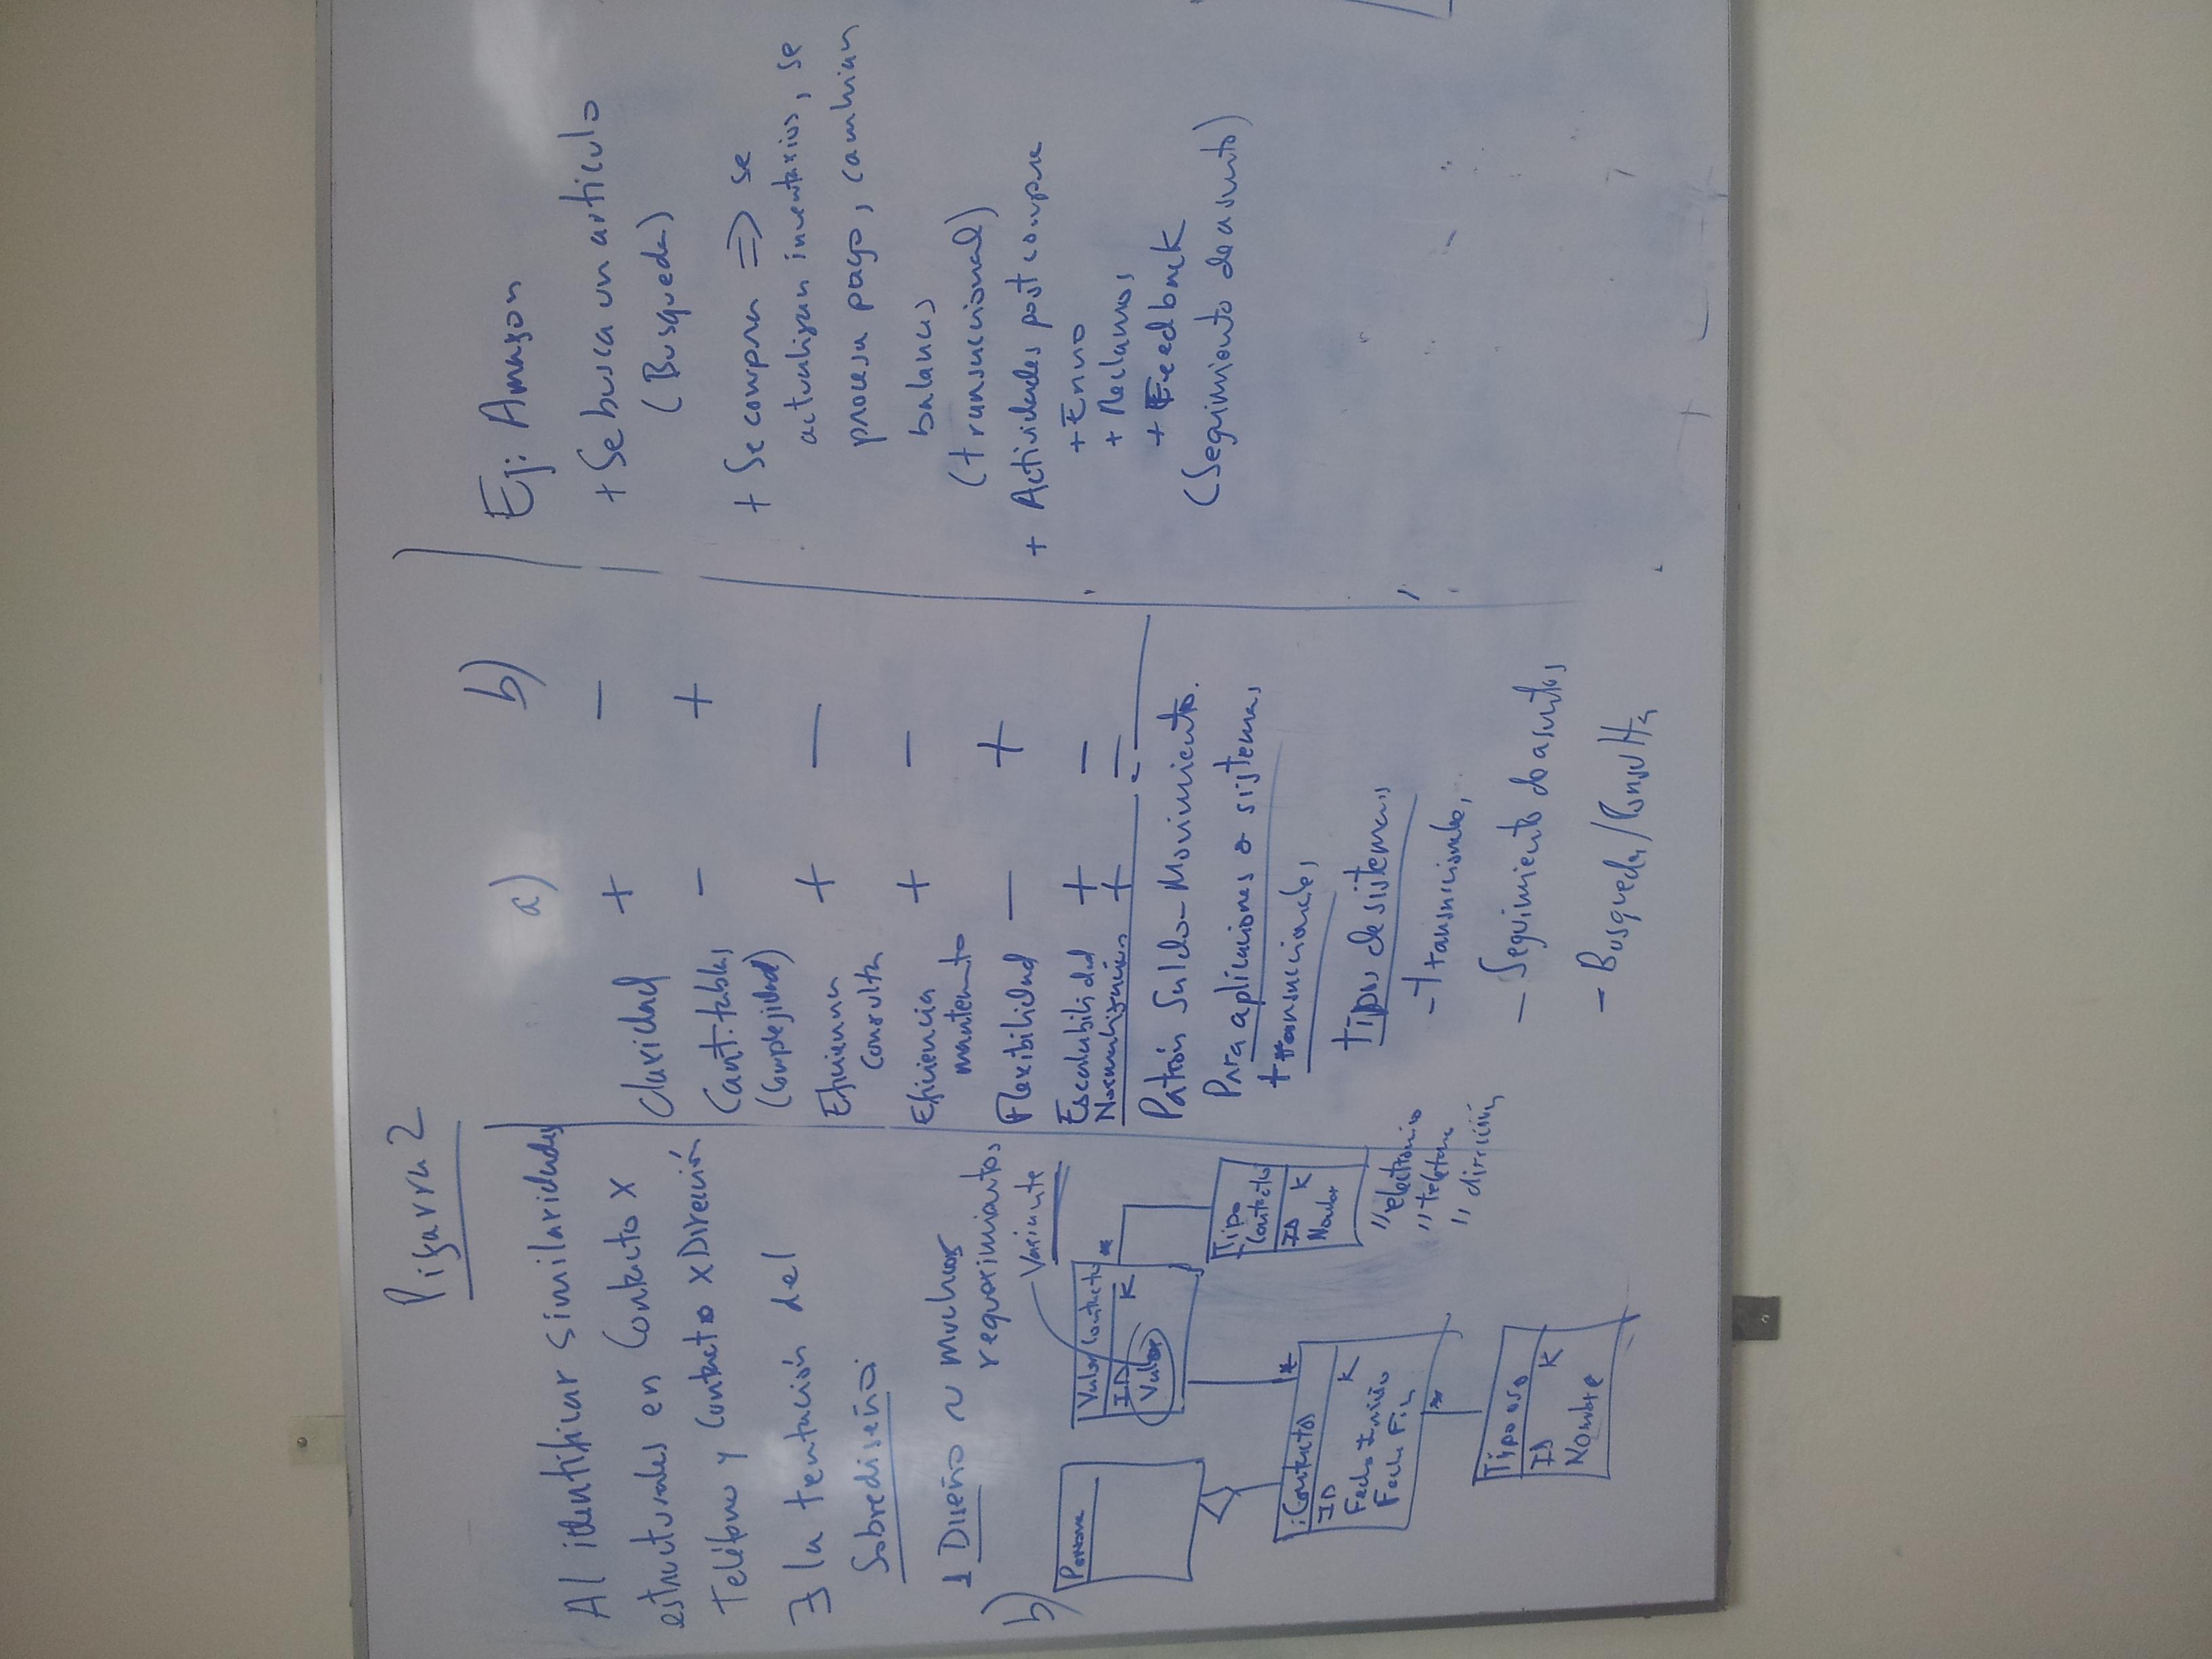 Pizarra 2
Al identificar similaridades
estructurales en Contacto x
Teléfono y Contacto x Dirección
∃ la tentación del
Sobrediseño:
1 Diseño ~ muchos
requerimientos
b)
Variante
Persona
Valor Contacto
ID K
Valor
*
Tipo
Contacto
ID K
Nombre
"electronico
"telefono
"dirección
*
:Contactos
ID K
Fecha Inicio
Fecha Fin
*
Tipo uso
ID K
Nombre
a) b)
Claridad + -
Cant. tablas - +
(Complejidad)
Eficiencia + -
Consulta
Eficiencia + -
mantento
Flexibilidad - +
Escalabilidad + -
Normalización + -
Patrón Saldo-Movimiento.
Para aplicaciones o sistemas
transaccionales
Tipos de sistemas
- Transaccionales
- Seguimiento de asuntos
- Busqueda/Consulta
Ej: Amazon
+ Se busca un articulo
(Busqueda)
+ Se compra => se
actualizan inventarios, se
procesa pago, cambian
balances
(transaccional)
+ Actividades post compra
+ Envio
+ Reclamos
+ Feedback
(Seguimiento de asunto)